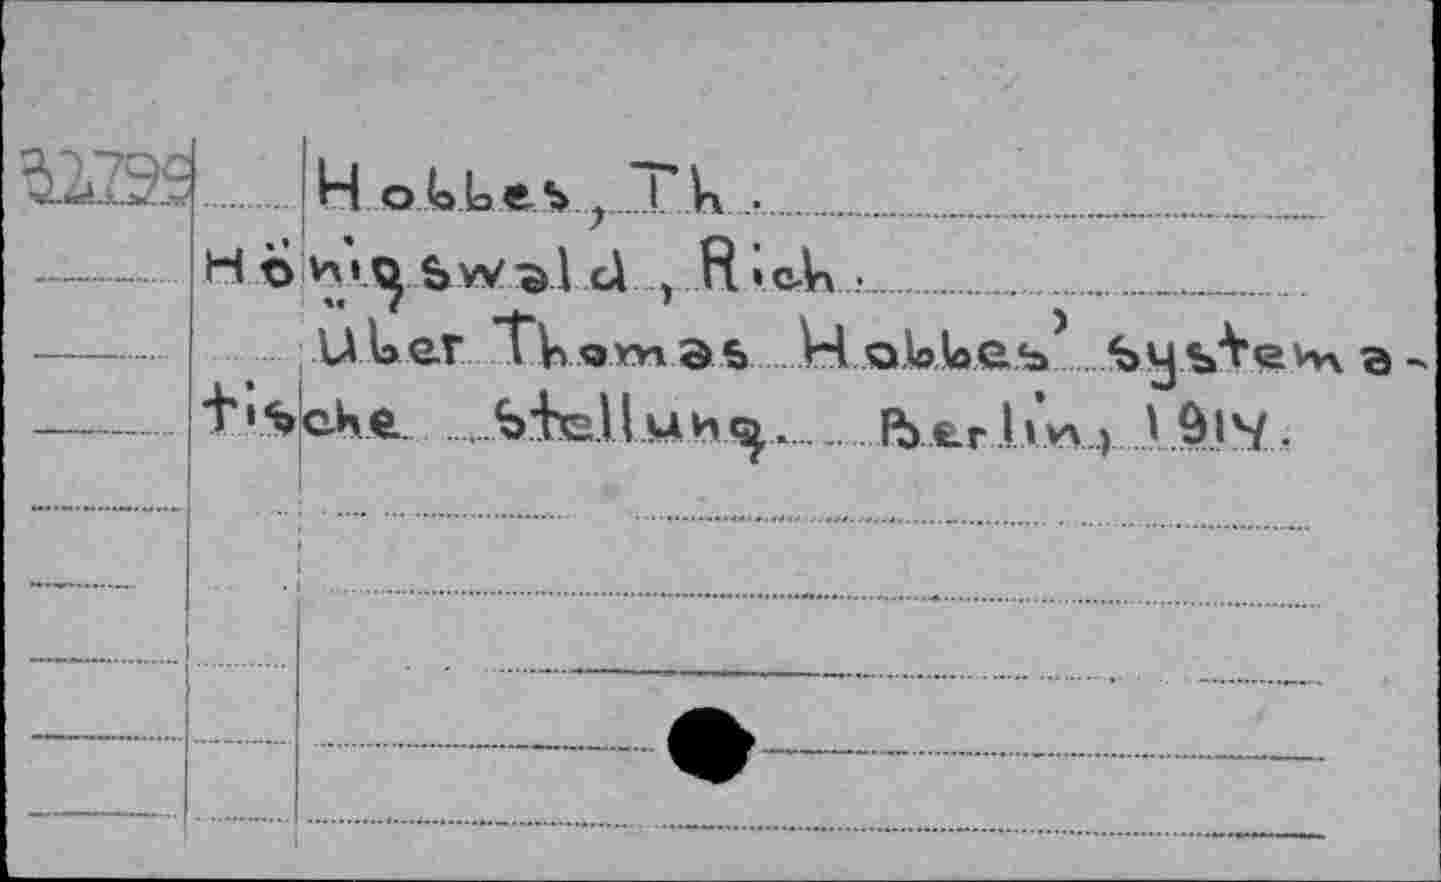 32799 Hobbes, Th.
Hönigswald, Rich.
Über Thomas Hobbes' systema-
tische Stellung. Berlin, 1914.